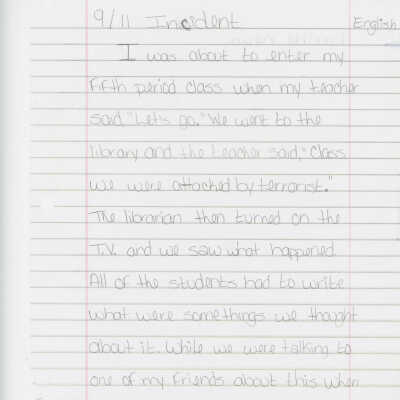 9/11 Incident English
I was about to enter my
fifth period class when my teacher
said "Let's go." We went to the
library and the teacher said, "Class
we were attacked by terrorist."
The librarian then turned on the
T.V. and we saw what happened.
All of the students had to write
what were somethings we thought
about it. While we were talking to
one of my friends about this when